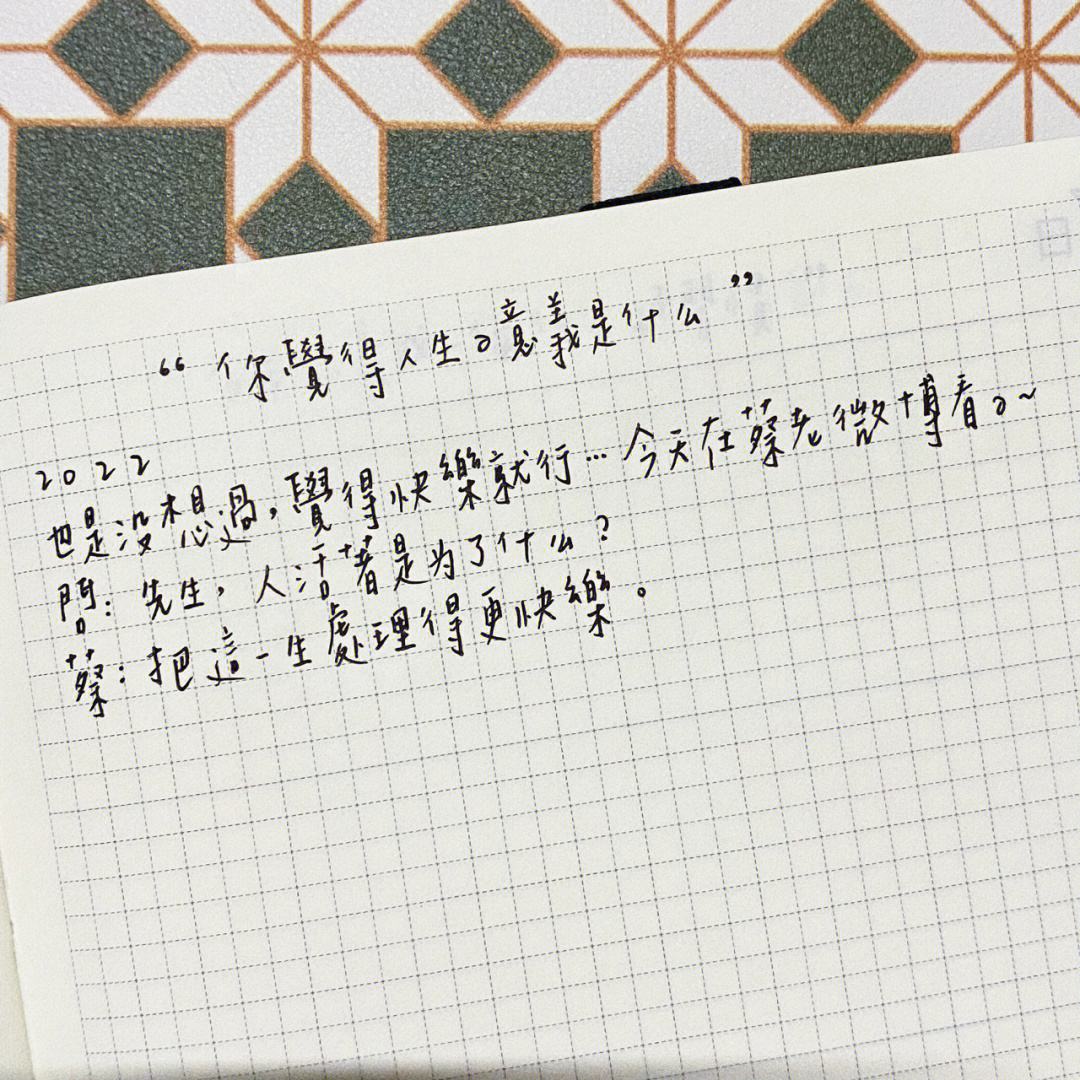 “你覺得人生の意義是什么”
2022
也是没想過，覺得快樂就行…今天在蔡老微博看の~
問：先生，人活著是为了什么？
蔡：把這一生處理得更快樂。